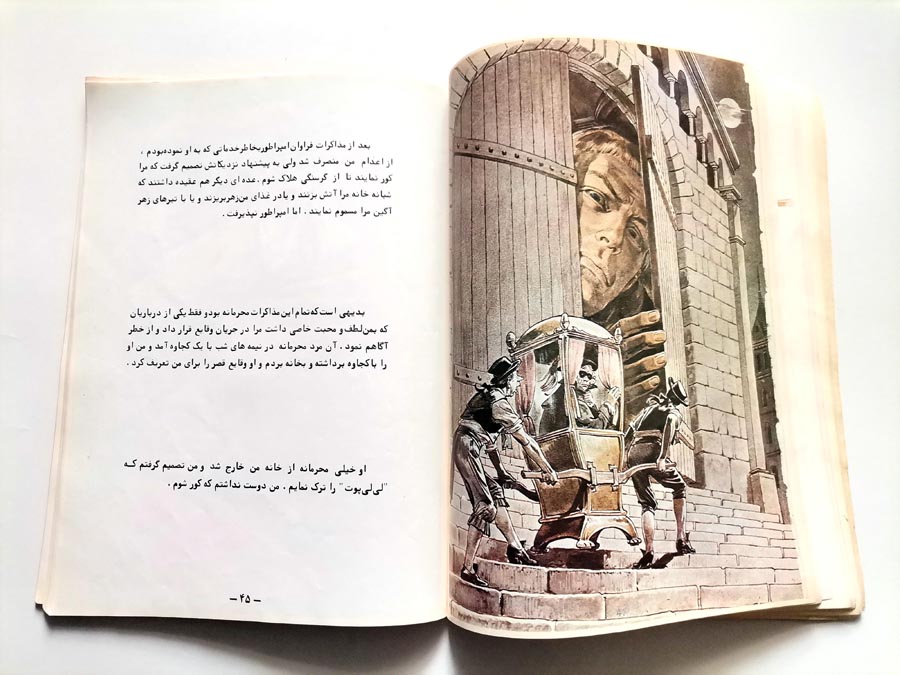 بعد از مذاکرات فراوان امپراطور بخاطر خدماتی که به او نموده بودم ،
از اعدام من منصرف شد ولی به پیشنهاد نزدیکانش تصمیم گرفت که مرا
کور نمایند تا از گرسنگی هلاک شوم . عده ای دیگر هم عقیده داشتند که
شبانه خانه مرا آتش بزنند و یا در غذای من زهر بریزند و یا با تیرهای زهر
آگین مرا مسموم نمایند . اما امپراطور نپذیرفت .
بدیهی است که تمام این مذاکرات محرمانه بود و فقط یکی از درباریان
که بمن لطف و محبت خاصی داشت مرا در جریان وقایع قرار داد و از خطر
آگاهم نمود . آن مرد محرمانه در نیمه های شب با یک کجاوه آمد و من او
را با کجاوه برداشته و بخانه بردم و او وقایع قصر را برای من تعریف کرد .
او خیلی محرمانه از خانه من خارج شد و من تصمیم گرفتم که
"لی‌لی‌پوت" را ترک نمایم . من دوست نداشتم که کور شوم .
— ۴۵ —